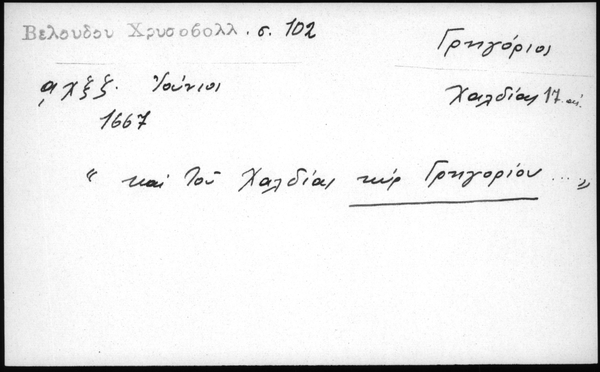 Βελουδου Χρυσοβολλ. σ. 102
Γρηγόριος
͵αχξζ. Ἰούνιος
Χαλδίας 17 αἰ.
1667
“ καὶ τοῦ Χαλδίας κὺρ Γρηγορίου ... „